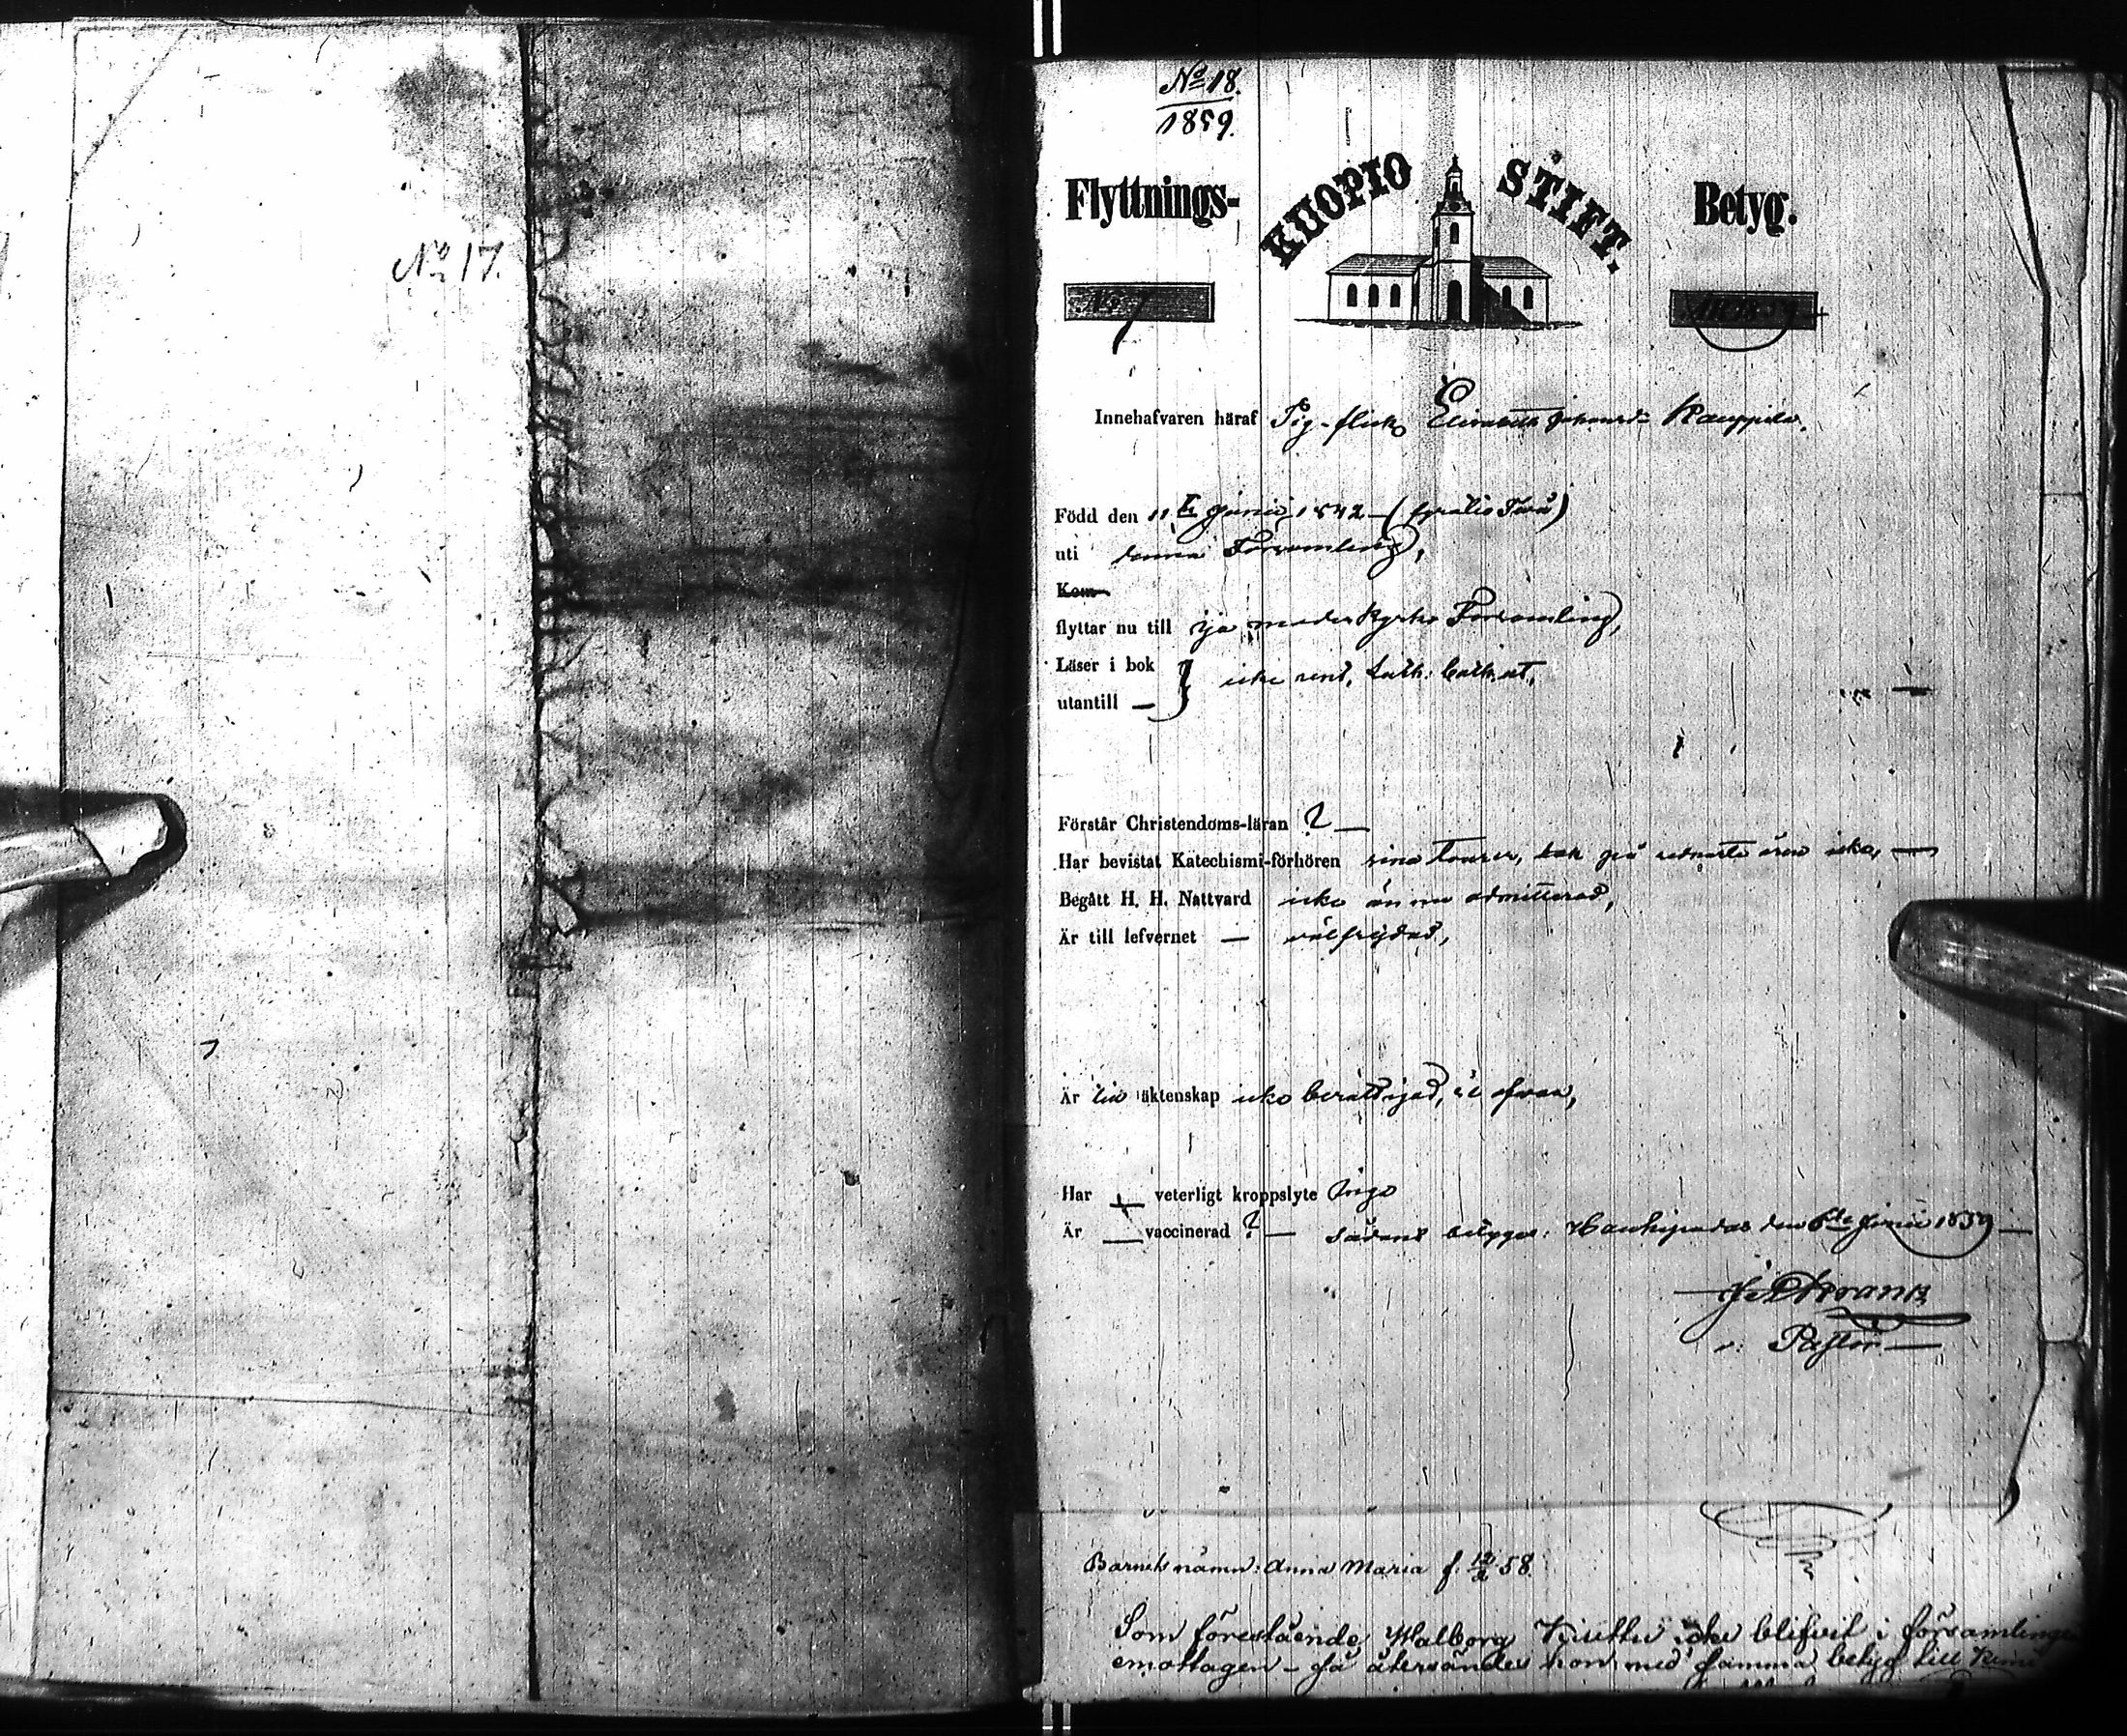 No 17.
No 18.
1859.
Flyttnings- KUOPIO STIFT. Betyg.
No 7
Innehafvaren häraf Pig-flick Elisabeth Kauppila,
Född den 11te Junii 1842
uti denna Församling,
Kom
flyttar nu till Ijo moderkyrko Församling,
Läser i bok
utantill icke rent,
Förstår Christendoms-läran ?
Har bevistat Katechismi-förhören sina tourer, icke,
Begått H. H. Nattvard icke ännu admitterad,
Är till lefvernet välfrejdad,
Är till äktenskap icke berättigad,
Har veterligt kroppslyte inga
Är vaccinerad ? — Haukipudas den 6te Junii 1859
Pastor
Barnets namn: Anna Maria f. 58.
Som förestående Walborg icke blifvit i församlingen
emottagen – så återsändes hon med samma betyg till Kemi